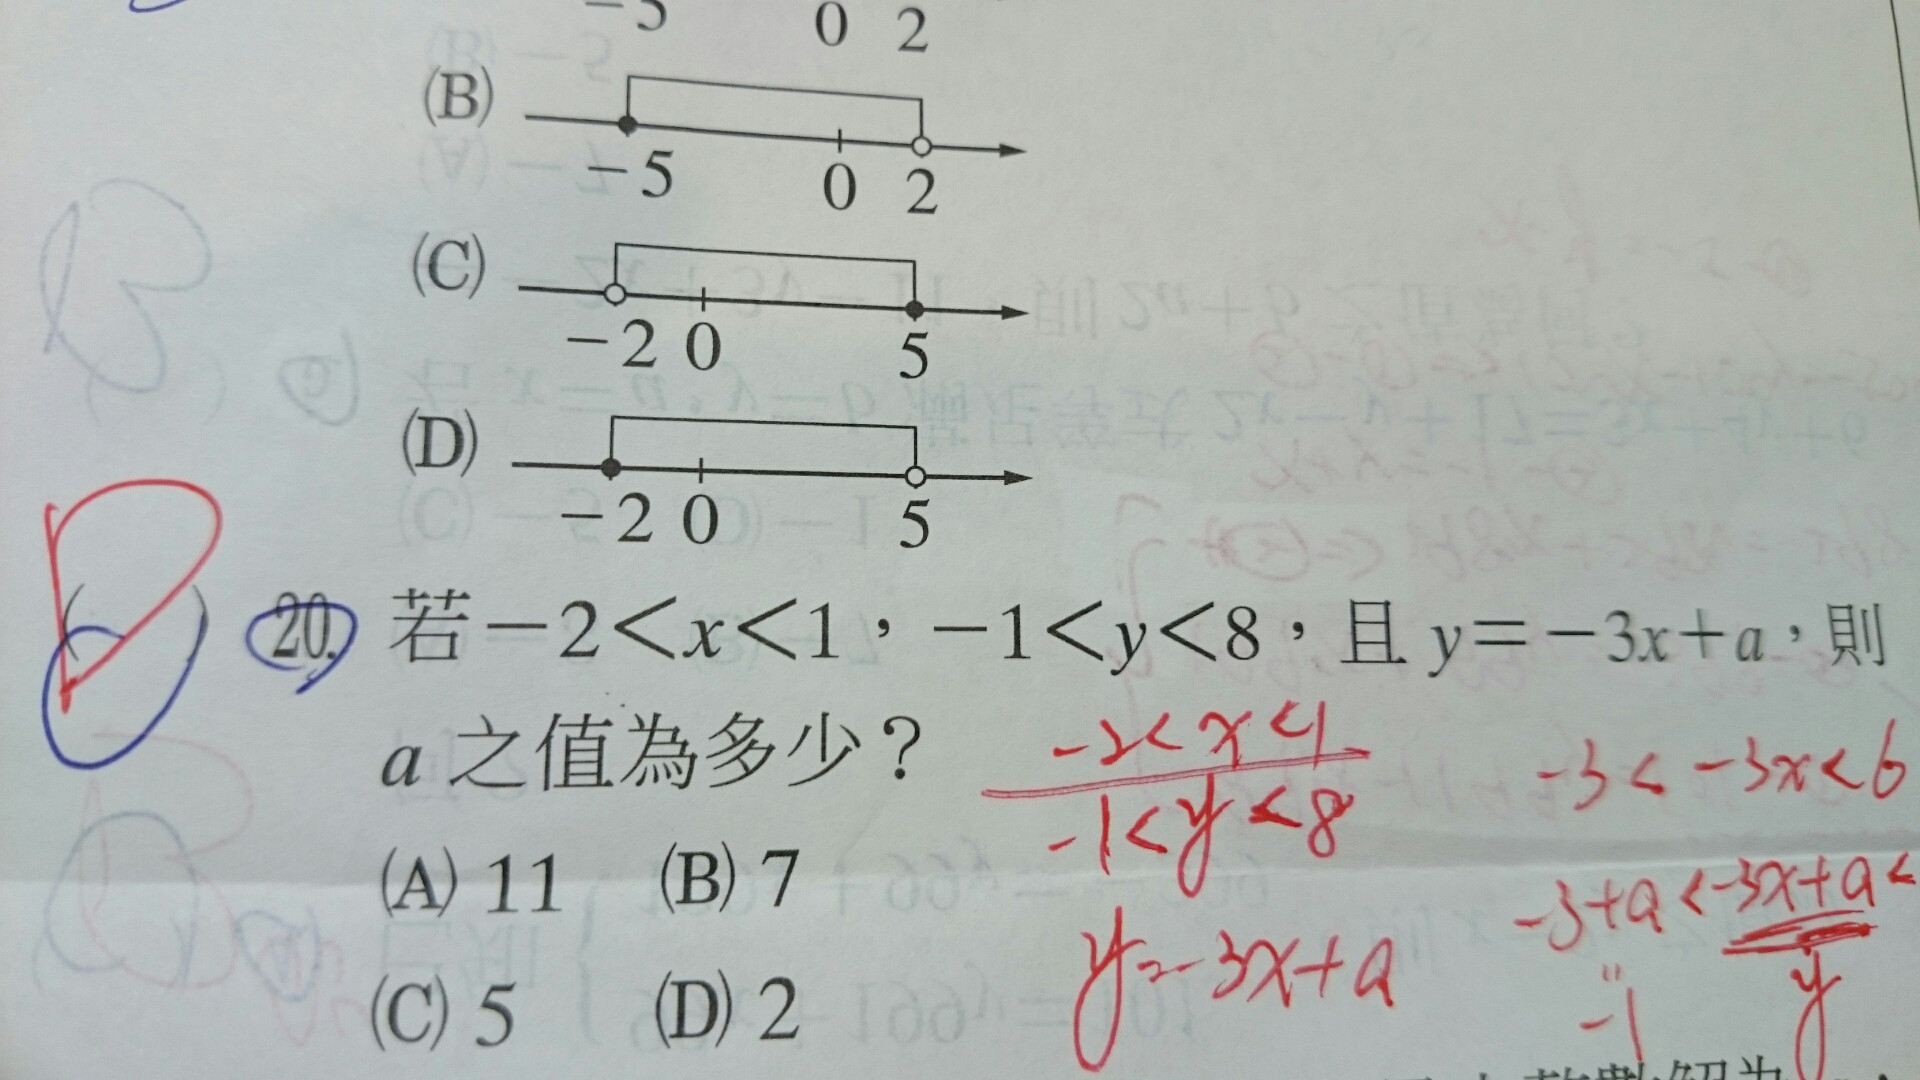 −5 0 2
(B)
−5 0 2
(C)
−2 0 5
(D)
−2 0 5
( ) 20. 若−2<x<1，−1<y<8，且 y=−3x+a，則
a 之值為多少？
(A) 11 (B) 7
(C) 5 (D) 2
-2<x<1
-1<y<8
y=-3x+a
-3<-3x<6
-3+a<-3x+a<
-1 y